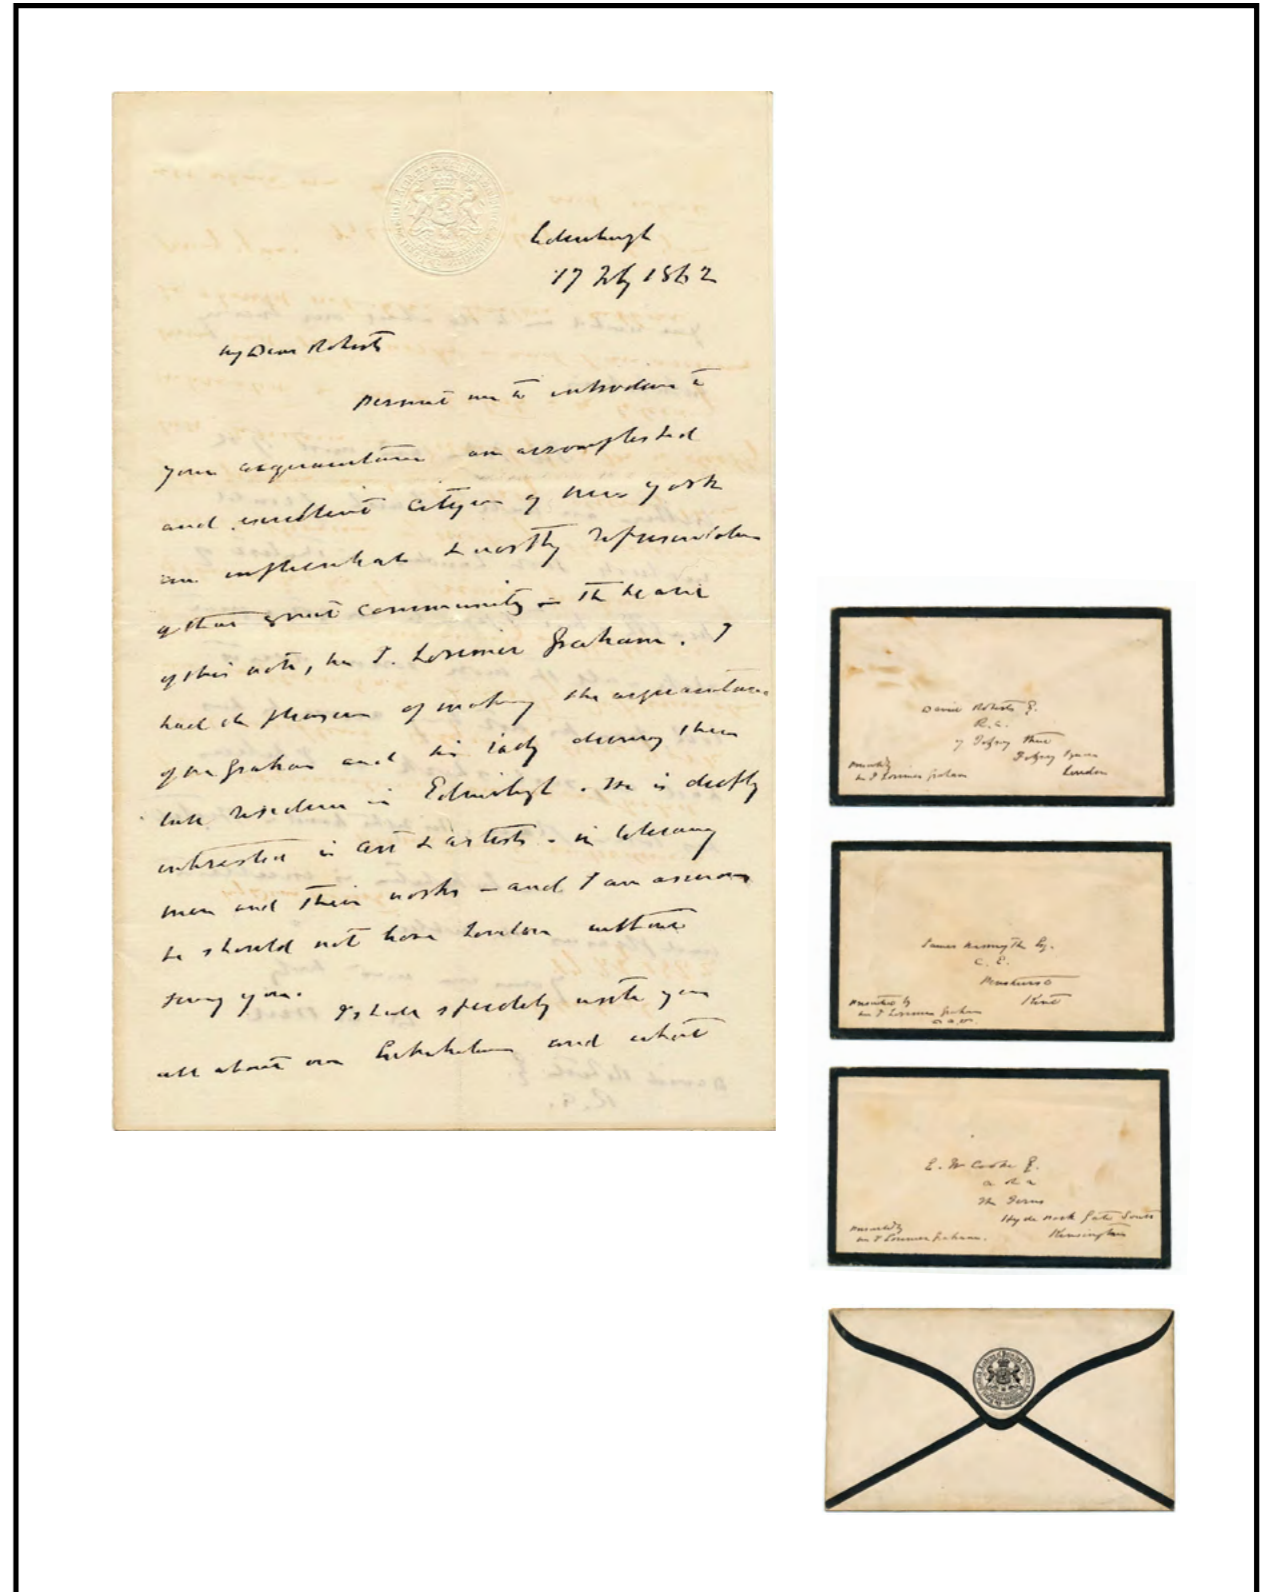 Edinburgh
17 Feby 1862
My Dear Roberts
Permit me to introduce to
your acquaintance an accomplished
and excellent citizen of New York
an influential & worthy representative
of that great community – The bearer
of this note, Mr J. Lorimer Graham. I
had the pleasure of making the acquaintance
of Mr Graham and his lady during their
late residence in Edinburgh. He is deeply
interested in art & artists – in literary
men and their works – and I am anxious
he should not leave London without
seeing you. I shall speedily write you
all about our Exhibition and what
David Roberts Esq.
R.A.
7 Fitzroy Street
Fitzroy Square
London
Presented by
Mr J Lorimer Graham
James Nasmyth Esq.
C. E.
Penshurst
Kent
Presented by
Mr J Lorimer Graham
E. W Cooke Esq.
A R A
The Ferns
Hyde Park Gate South
Kensington
Presented by
Mr J Lorimer Graham.